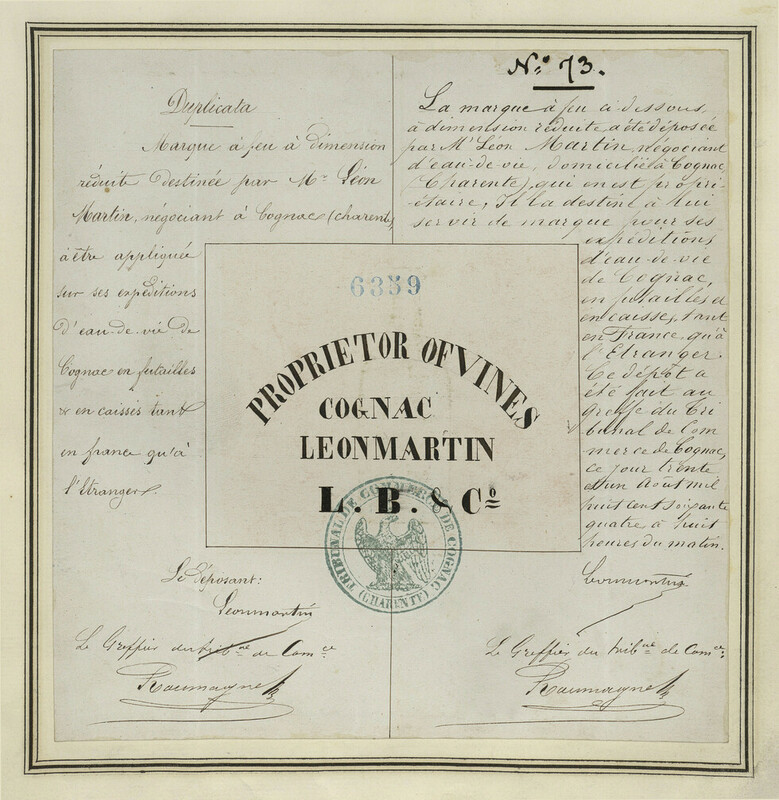 Duplicata
Marque à feu à dimension
réduite destinée par Mr. Léon
Martin, négociant à Cognac (charente)
à être appliquée
sur ses expéditions
d'eau-de-vie de
Cognac en futailles
& en caisses tant
en france qu'à
l'Etranger.
Le déposant:
Leonmartin
Le Greffier du tribnal de Comce
Roumagne
No. 73.
La marque à feu ci dessous,
à dimension réduite a été déposée
par Mr Léon Martin, négociant
d'eau-de-vie, domicilié à Cognac
(Charente), qui en est propri-
étaire, Il la destine à lui
servir de marque pour ses
expéditions
d'eau-de-vie
de Cognac,
en futailles et
en caisses, tant
en France qu'à
l'Etranger.
Ce dépôt a
été fait au
greffe du Tri
bunal de Com
merce de Cognac,
ce jour trente
et un Août mil
huit cent soixante
quatre à huit
heures du matin.
Leonmartin
Le Greffier du tribnal de Comce:
Roumagne
6359
PROPRIETOR OF VINES
COGNAC
LEONMARTIN
L. B. & Co
TRIBUNAL DE COMMERCE DE COGNAC
(CHARENTE)